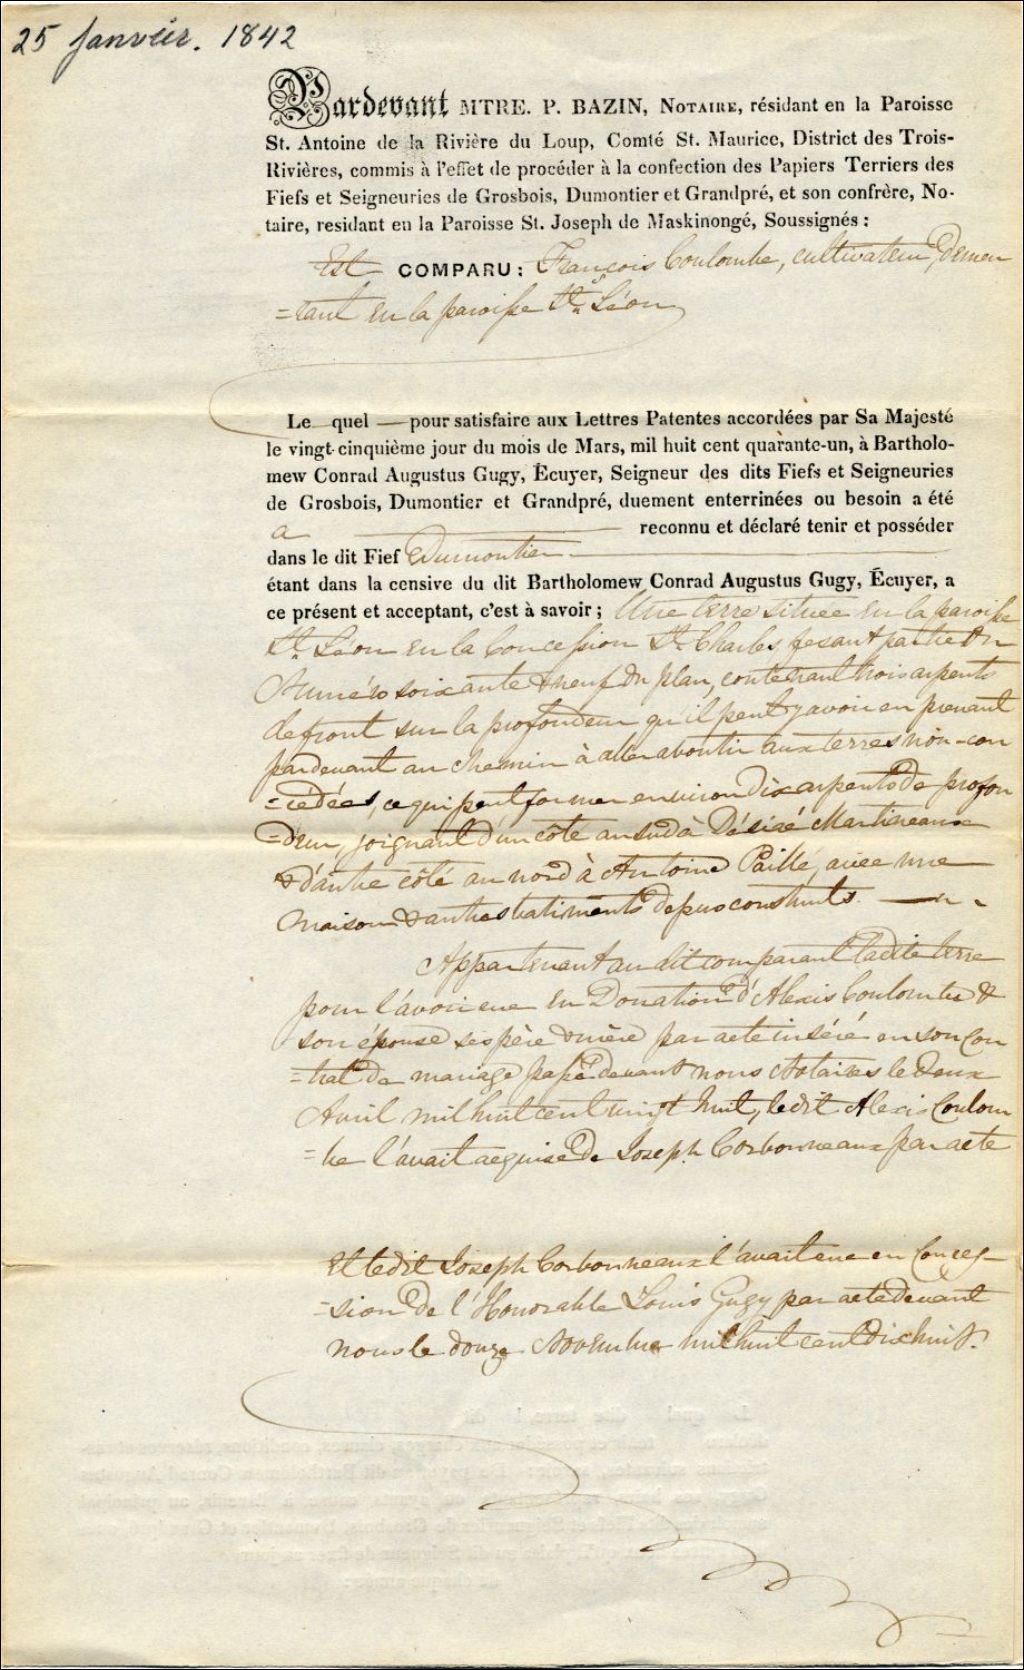 25 Janvier. 1842
Pardevant MTRE. P. BAZIN, NOTAIRE, résidant en la Paroisse
St. Antoine de la Rivière du Loup, Comté St. Maurice, District des Trois-
Rivières, commis à l'effet de procéder à la confection des Papiers Terriers des
Fiefs et Seigneuries de Grosbois, Dumontier et Grandpré, et son confrère, No-
taire, residant en la Paroisse St. Joseph de Maskinongé, Soussignés :
Est COMPARU : François Coulombe, cultivateur, Demeu
=rant en la paroisse St. Léon
Le quel — pour satisfaire aux Lettres Patentes accordées par Sa Majesté
le vingt-cinquième jour du mois de Mars, mil huit cent quarante-un, à Bartholo-
mew Conrad Augustus Gugy, Écuyer, Seigneur des dits Fiefs et Seigneuries
de Grosbois, Dumontier et Grandpré, duement enterrinées ou besoin a été
a reconnu et déclaré tenir et posséder
dans le dit Fief Dumontier
étant dans la censive du dit Bartholomew Conrad Augustus Gugy, Écuyer, a
ce présent et acceptant, c'est à savoir ; Une terre située en la paroisse
St. Léon en la Concession St. Charles, fesant partie du
Numéro soixante & neuf du plan, contenant trois arpents
de front sur la profondeur qu'il peut y avoir en prenant
pardevant au Chemin à aller aboutir aux terres non-con
=cedées, ce qui peut former environ Dix arpents de profon
=deur, joignant d'un côté au sud à Désiré Martineaux
& d'autre côté au nord à Antoine Paillé, avec une
Maison & autres batiments depuis construits.
Appartenant au dit comparant ladite terre
pour l'avoir eue en Donation d'Alexis Coulombe &
son épouse ses père & mère par acte inséré en son Con
=trat de mariage passé devant nous Notaires le Deux
Avril mil huit cent vingt huit, ledit Alexis Coulom
=be l'avait acquise de Joseph Corbonneaux par acte
Et ledit Joseph Corbonneaux l'avait eue en Conces-
=sion de l'Honorable Louis Gugy par acte devant
nous le douze Novembre mil huit cent dix huit.